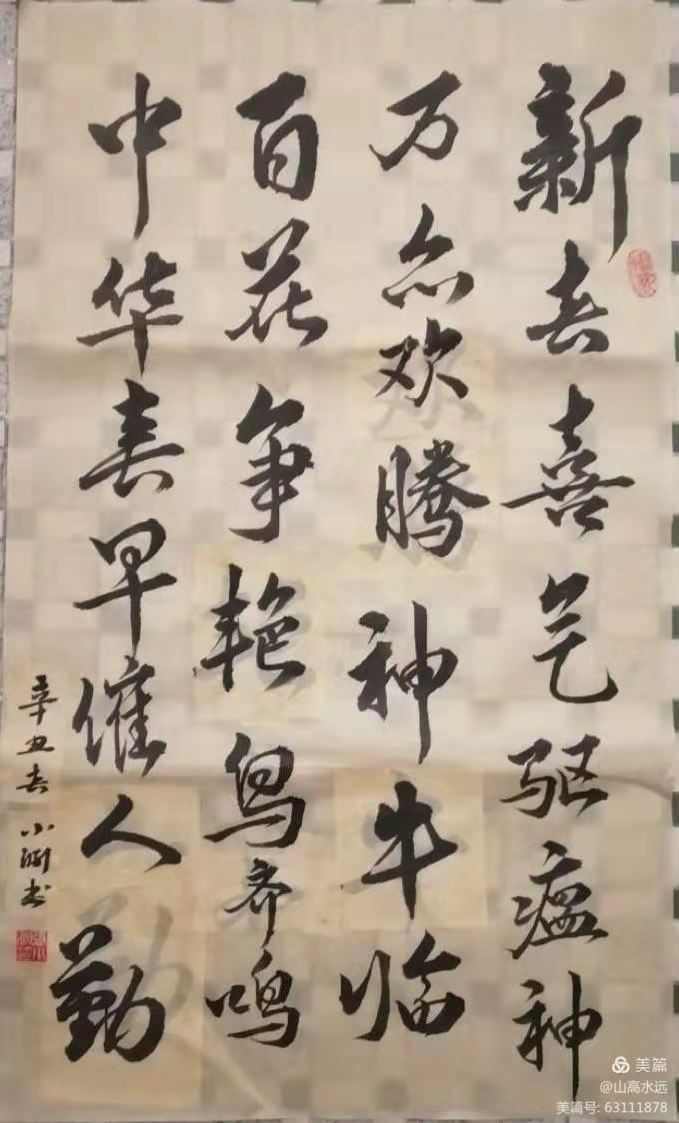 新春喜气驱瘟神
万众欢腾神牛临
百花争艳鸟齐鸣
中华春早催人勤
辛丑春 小刚书
美篇
@山高水远
美篇号: 63111878